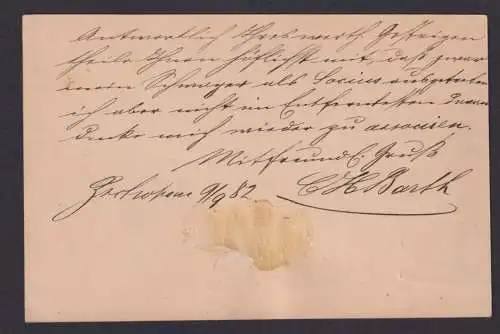 Antwortlich Ihres werth. Gestrigen
theile Ihnen höflichst mit, daß zwar
mein Schwager als Socius ausgetreten
ich aber nicht im Entferntesten daran
denke mich wieder zu associen.
Mit freundl. Gruß
9/9 82 C H Barth